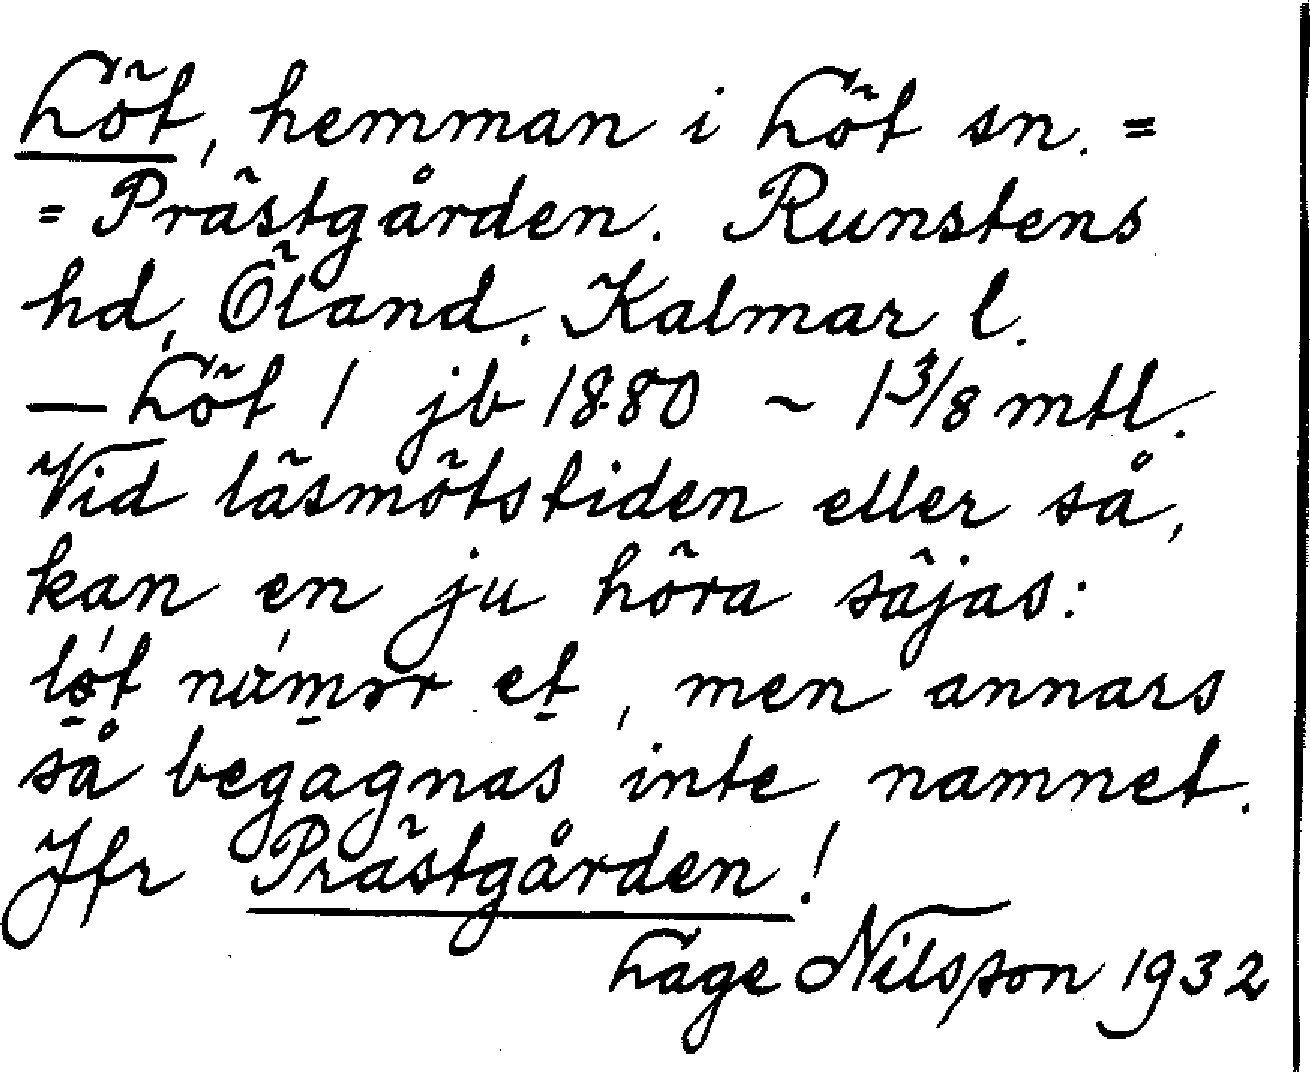 Löt, hemman i Löt sn. =
= Prästgården. Runstens
hd, Öland. Kalmar l.
— Löt 1 jb 1880 ~ 1 3/8 mtl.
Vid läsmötstiden eller så,
kan en ju höra säjas:
löt et, men annars
så begagnas inte namnet.
Jfr Prästgården!
Lage Nilsson 1932